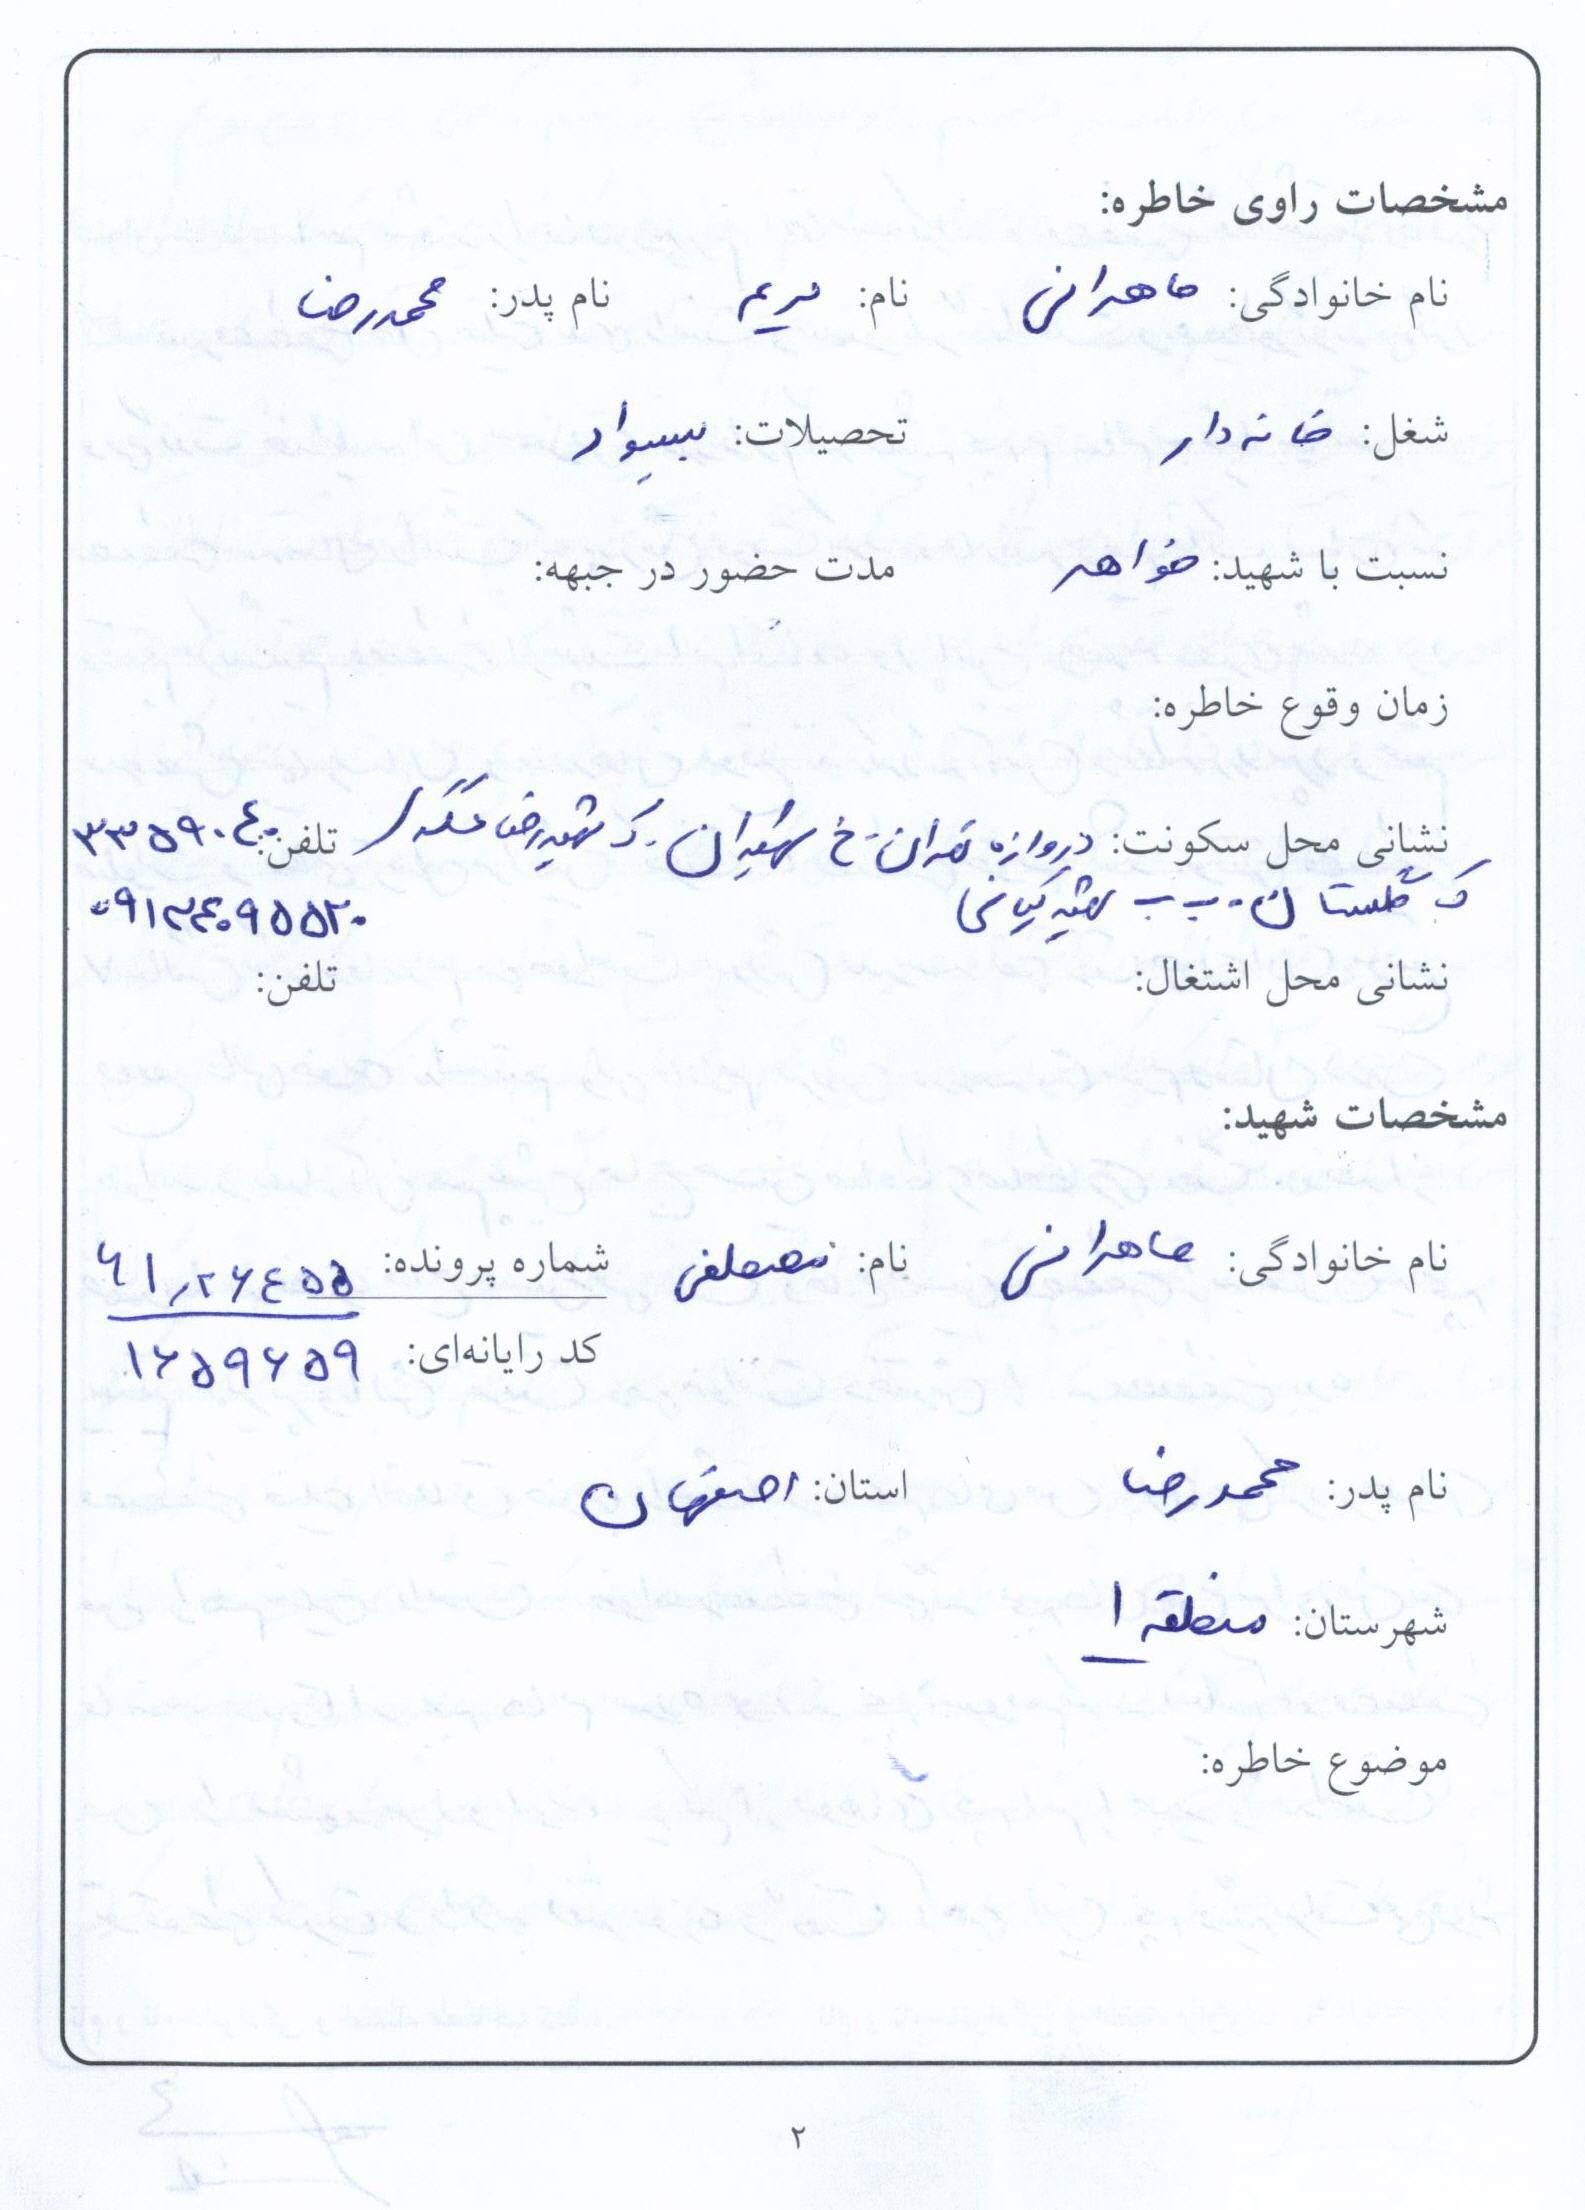 مشخصات راوی خاطره:
نام خانوادگی: ماهرانی نام: مریم نام پدر: محمدرضا
شغل: خانه دار تحصیلات: بیسواد
نسبت با شهید: خواهر مدت حضور در جبهه:
زمان وقوع خاطره:
نشانی محل سکونت: دروازه تهران - خ شهیدان - ک شهید رضا تلفن: ۳۳۵۹۰۴۰
ک گلستان - ب ب شهید
نشانی محل اشتغال: تلفن:
مشخصات شهید:
نام خانوادگی: ماهرانی نام: مصطفی شماره پرونده:
کد رایانه‌ای: ۱۶۵۹۶۵۹
نام پدر: محمدرضا استان: اصفهان
شهرستان: منطقه ۱
موضوع خاطره:
۲